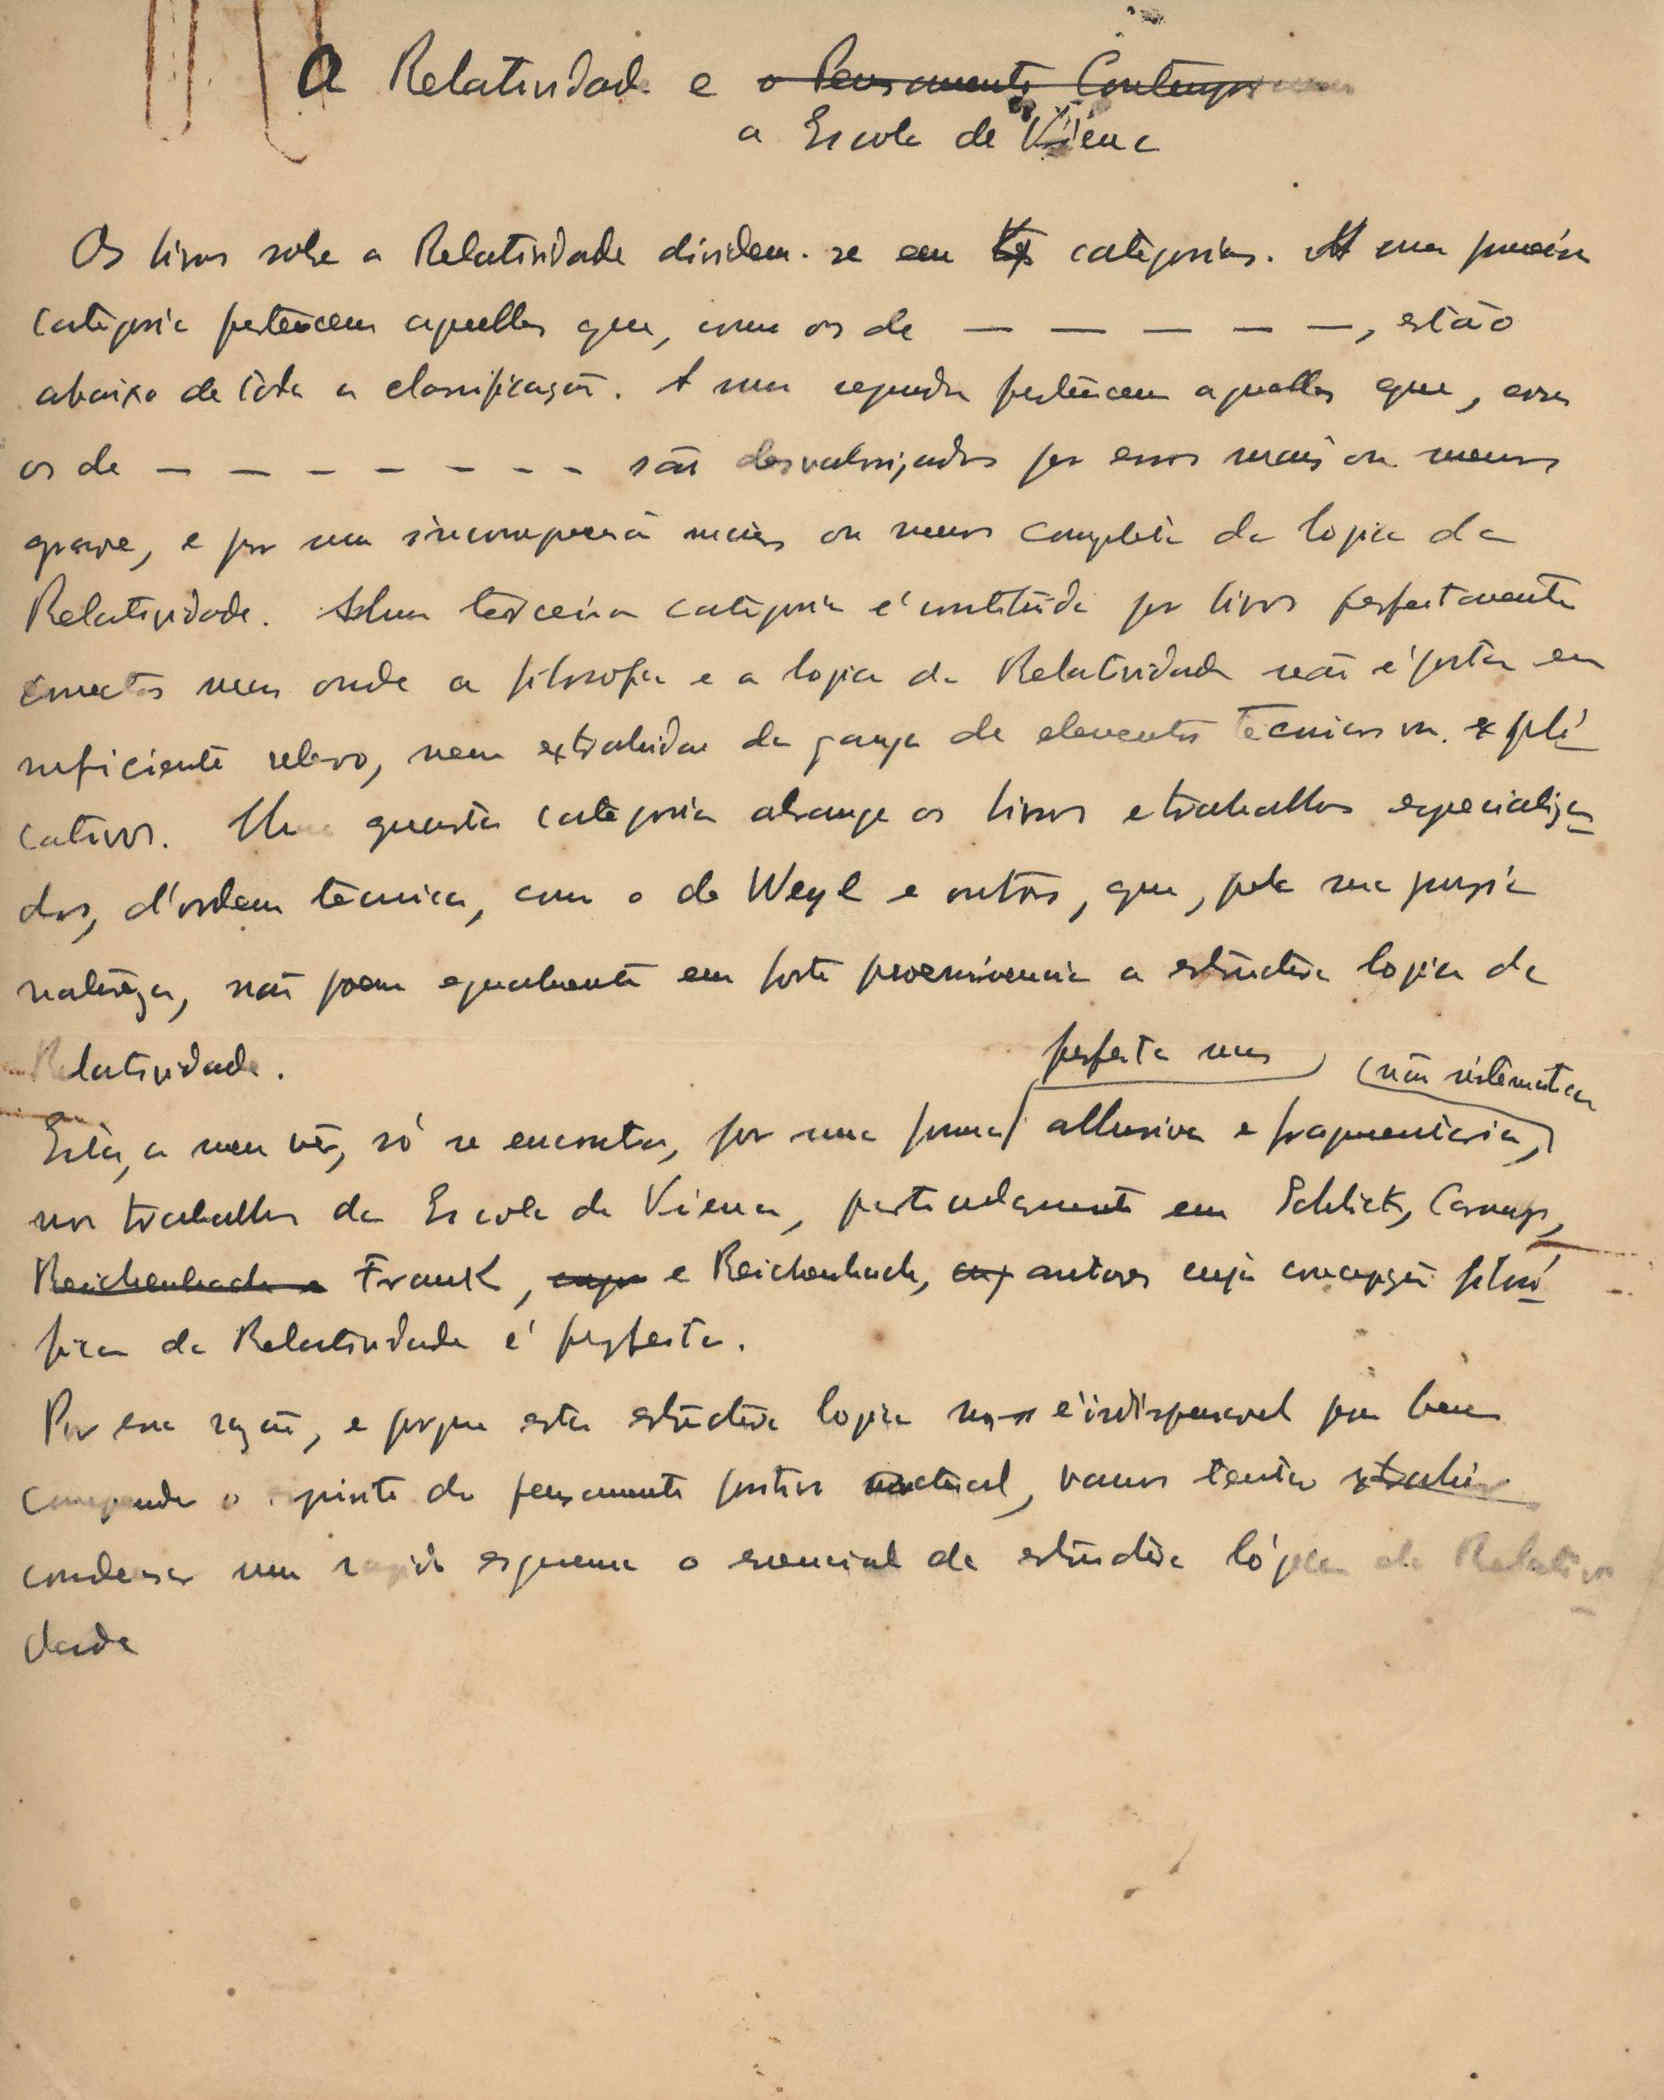 A Relatividade e o Pensamento Contemporaneo
a Escola de Viena
Os livros sobre a Relatividade dividem-se em categorias. A uma primeira
categoria pertencem aquelles que, como os de — — — — —, estão
abaixo de toda a classificação. A uma segunda pertencem aquelles que, como
os de — — — — — — — são desvalorizados por erros mais ou menos
grave, e por uma incompreensão mais ou menos completa da logica da
Relatividade. Uma terceira categoria é constituida por livros perfeitamente
correctos mas onde a filosofia e a logica da Relatividade não é posta em
suficiente relevo, nem extrahidas da ganga de elementos tecnicos ou expli-
cativos. Uma quarta categoria abrange os livros e trabalhos especializa-
dos, d'ordem tecnica, como o de Weyl e outros, que, pela sua propria
natureza, não poem egualmente em forte proeminencia a estructura logica da
Relatividade.
perfeita mas (não sistematica
Esta, a meu vêr, só se encontra, por uma forma allusiva e fragmentaria,
nos trabalhos da Escola de Viena, particularmente em Schlick, Carnap,
Reichenbach e Frank, cuja e Reichenbach, cuj autores cuja concepção filosó-
fica da Relatividade é perfeita.
Por essa razão, e porque esta estructura logica é indispensavel para bem
comprender o espirito do pensamento positivo actual, vamos tentar extrahir
condensar num rapido esquema o essencial da estructura lógica da Relativi-
dade